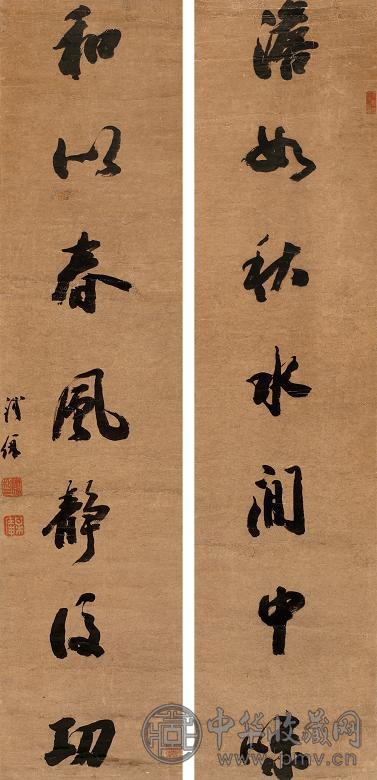 澹如秋水閒中味
和似春風靜後功
鐵保
中华收藏网
www.pmv.cn